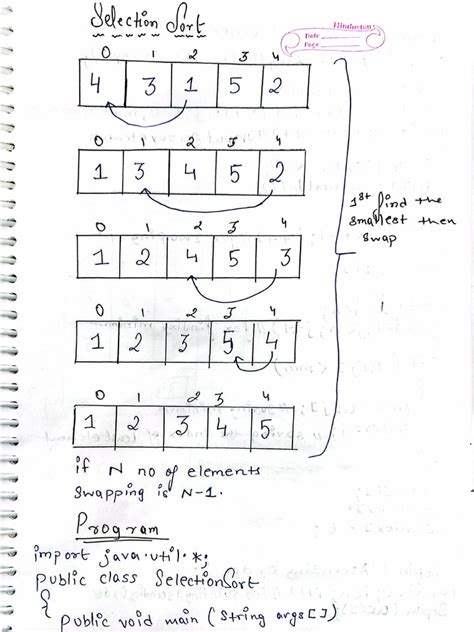 Selection Sort
Hindustan
Date
Page
0 1 2 3 4
4 3 1 5 2
0 1 2 3 4
1 3 4 5 2
1st find the
smallest then
swap
0 1 2 3 4
1 2 4 5 3
0 1 2 3 4
1 2 3 5 4
0 1 2 3 4
1 2 3 4 5
if N no of elements
swapping is N-1.
Program
import java.util.*;
public class SelectionSort
{
public void main (String args[])